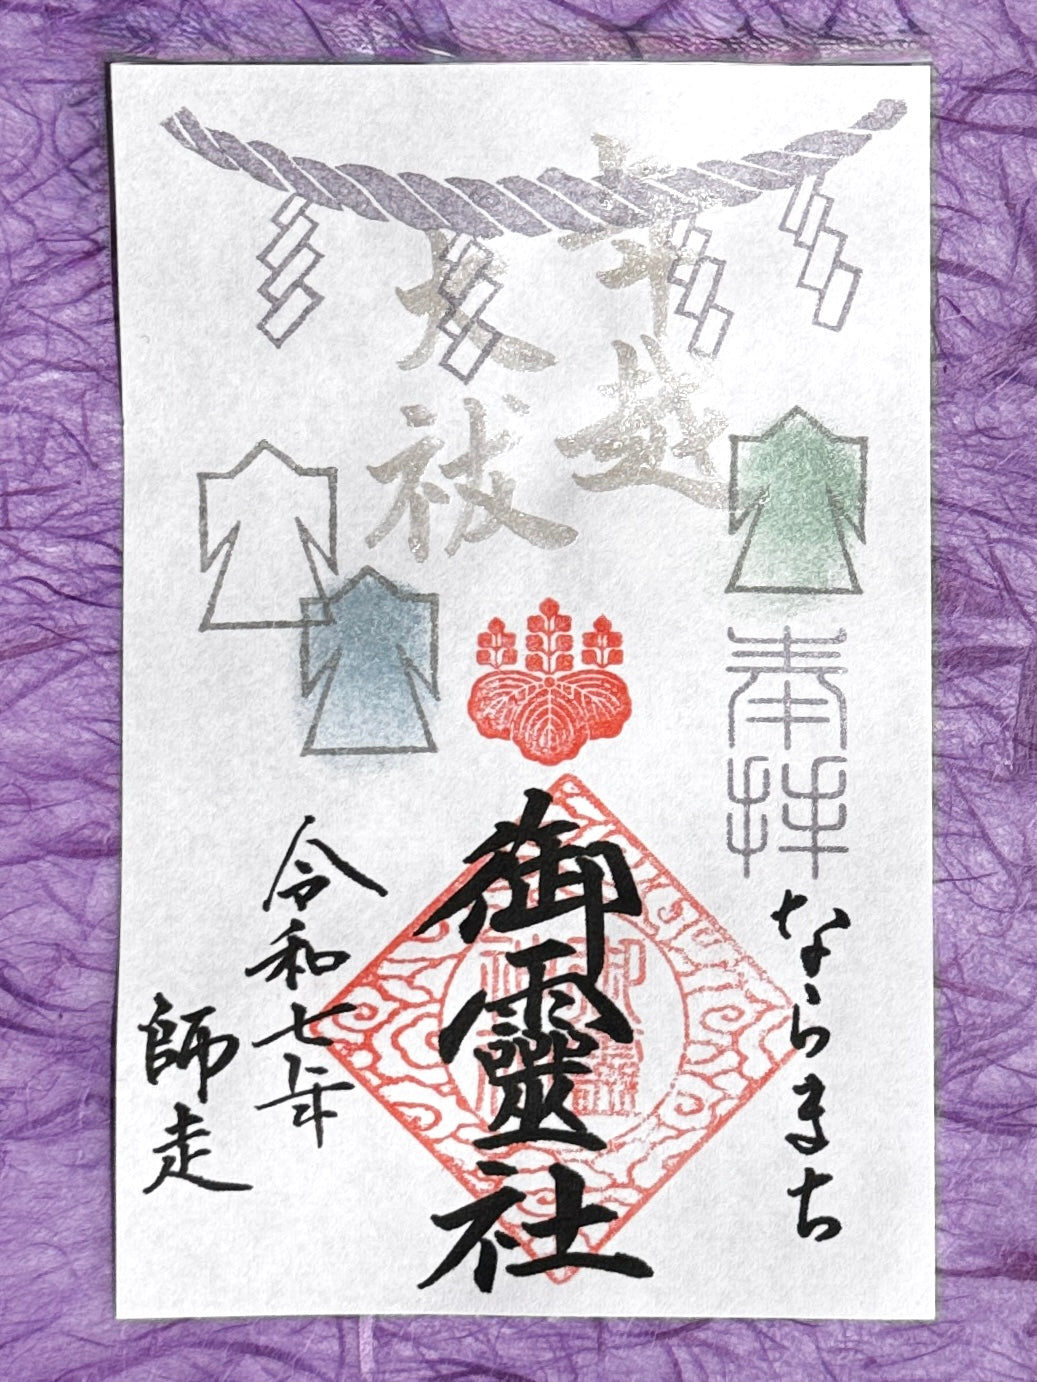 奉拝
ならまち
年越
大祓
御靈社
令和七年
師走